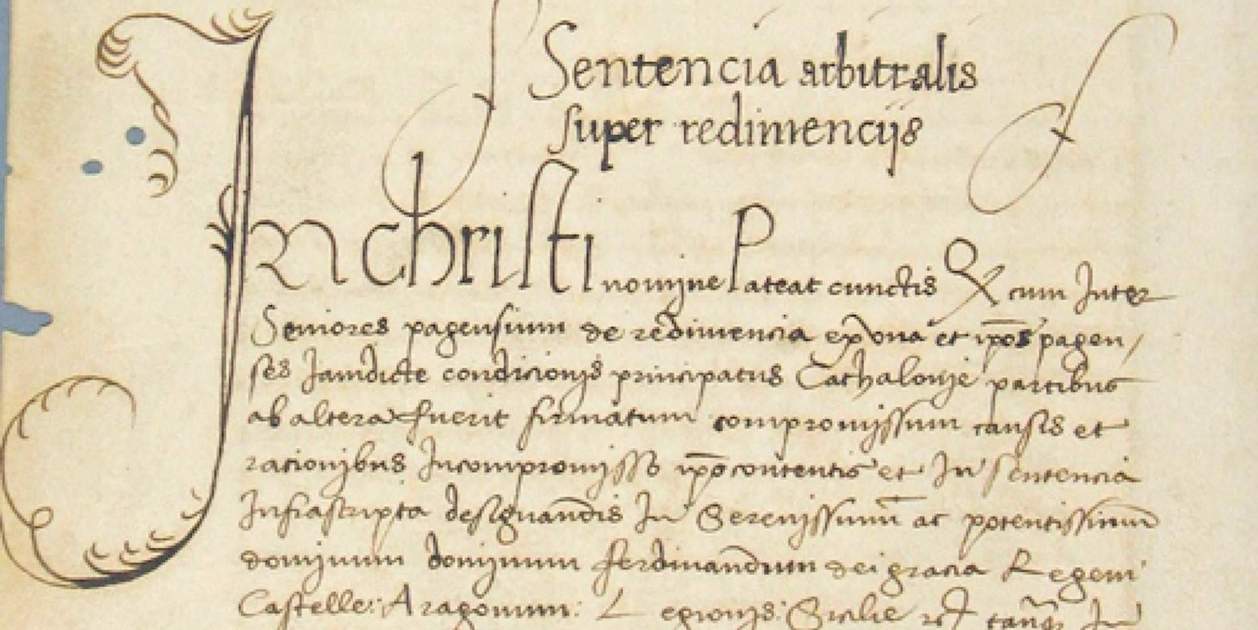 Sentencia arbitralis
super redimencijs
In christi nomine Pateat cunctis Q cum Inter
Seniores pagensium de redimencia ex una et ipos pagen/
ses Jamdicte condicionis principatus Cathalonie partibus
ab altera fuerit firmatum compromissum causis et
racionibus Incompromisso ipo contentis et In sentencia
Infrascripta designandis In Serenissimum ac potentissimum
dominum dominum ferdinandum dei gracia Regem
Castelle: Aragonum: Legionis: Sicilie tanq In